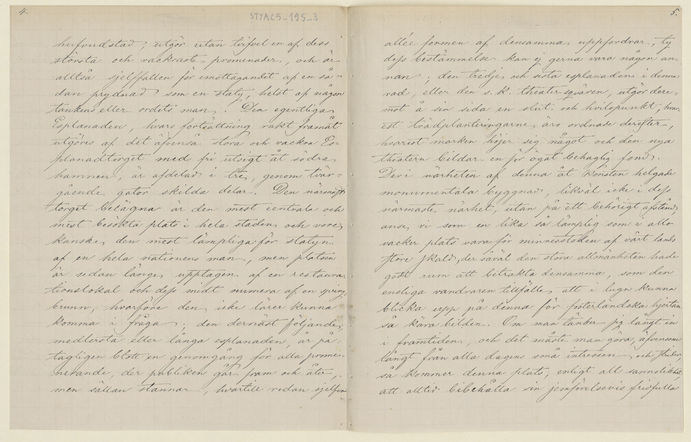 4.
STYACS-195-3
hufvudstad, utgör utan tvifvel en af dess
största och vackrast promenader, och är
alltså sjelffallen för emottagandet af en så-
dan prydnad som en staty, helst af någon
tankens eller ordets man. Den egentliga
Esplanaden, hvars fortsättning rakt framåt
utgöres af det afensa stora och vackra Es-
planadtorget med fri utsigt åt södra
hamnen, är afdelad i tre, genom tvär-
gående gator skilda delar. Den närmast
torget belägna är den mest centrala och
mest besökta plats i hela staden och vore
kanske den mest lämpliga för statyn
af en hela nationens man, men platsen
är sedan länge upptagen af en restaura-
tionslokal och dess midt numera af en spring-
brunn, hvarföre den icke lärer kunna
komma i fråga; den dernäst följande,
medlersta eller långa esplanaden, är på-
tagligen blott en genomgång för alla prome-
nerande, der publiken går fram och åter,
men sällan stannar, hvartill redan sjelfva
5.
allée formen af densamma uppfordrar, ty
dess bestämmelse kan ej gerna vara någon an-
nan; den tredje och sista esplanaden i denna
rad, eller den s.k. theater-sqvaren, utgör dere-
mot å sin sida en slut- och hvilopunkt, hvar-
est trädplanteringarne äro ordnade derefter,
hvarest marken höjer sig något och den nya
theatern bildar en för ögat behaglig fond.
Der i närheten af denna åt konsten helgade
monumentala byggnad, likväl icke i dess
närmaste närhet, utan på ett behörigt afstånd,
anse vi som en lika så lämplig som i allo
vacker plats vara för minnesstoden af vårt lands
störe skald, der såväl den stora allmänheten hade
godt rum att betrakta densamma, som den
ensliga vandraren tillfälle att i lugn kunna
blicka upp på denna för fosterländska hjertan
så kära bilden. Om man tänker sig långt in
i framtiden, och det måste man göra, aflägsnon
långt från alla dagens små intressen, och
så kommer denna plats, enligt all sannolikhet
att alltid bibehålla sin jemförelsevis fridfulla